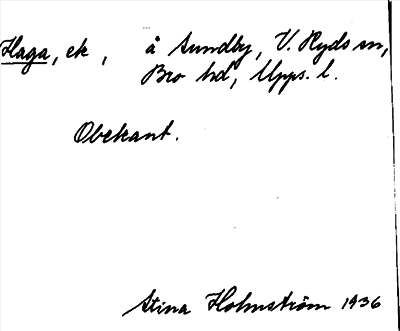 Haga, ek, å Sundby, V. Ryds sn,
Bro hd, Upps. l.
Obekant.
Stina Holmström 1936